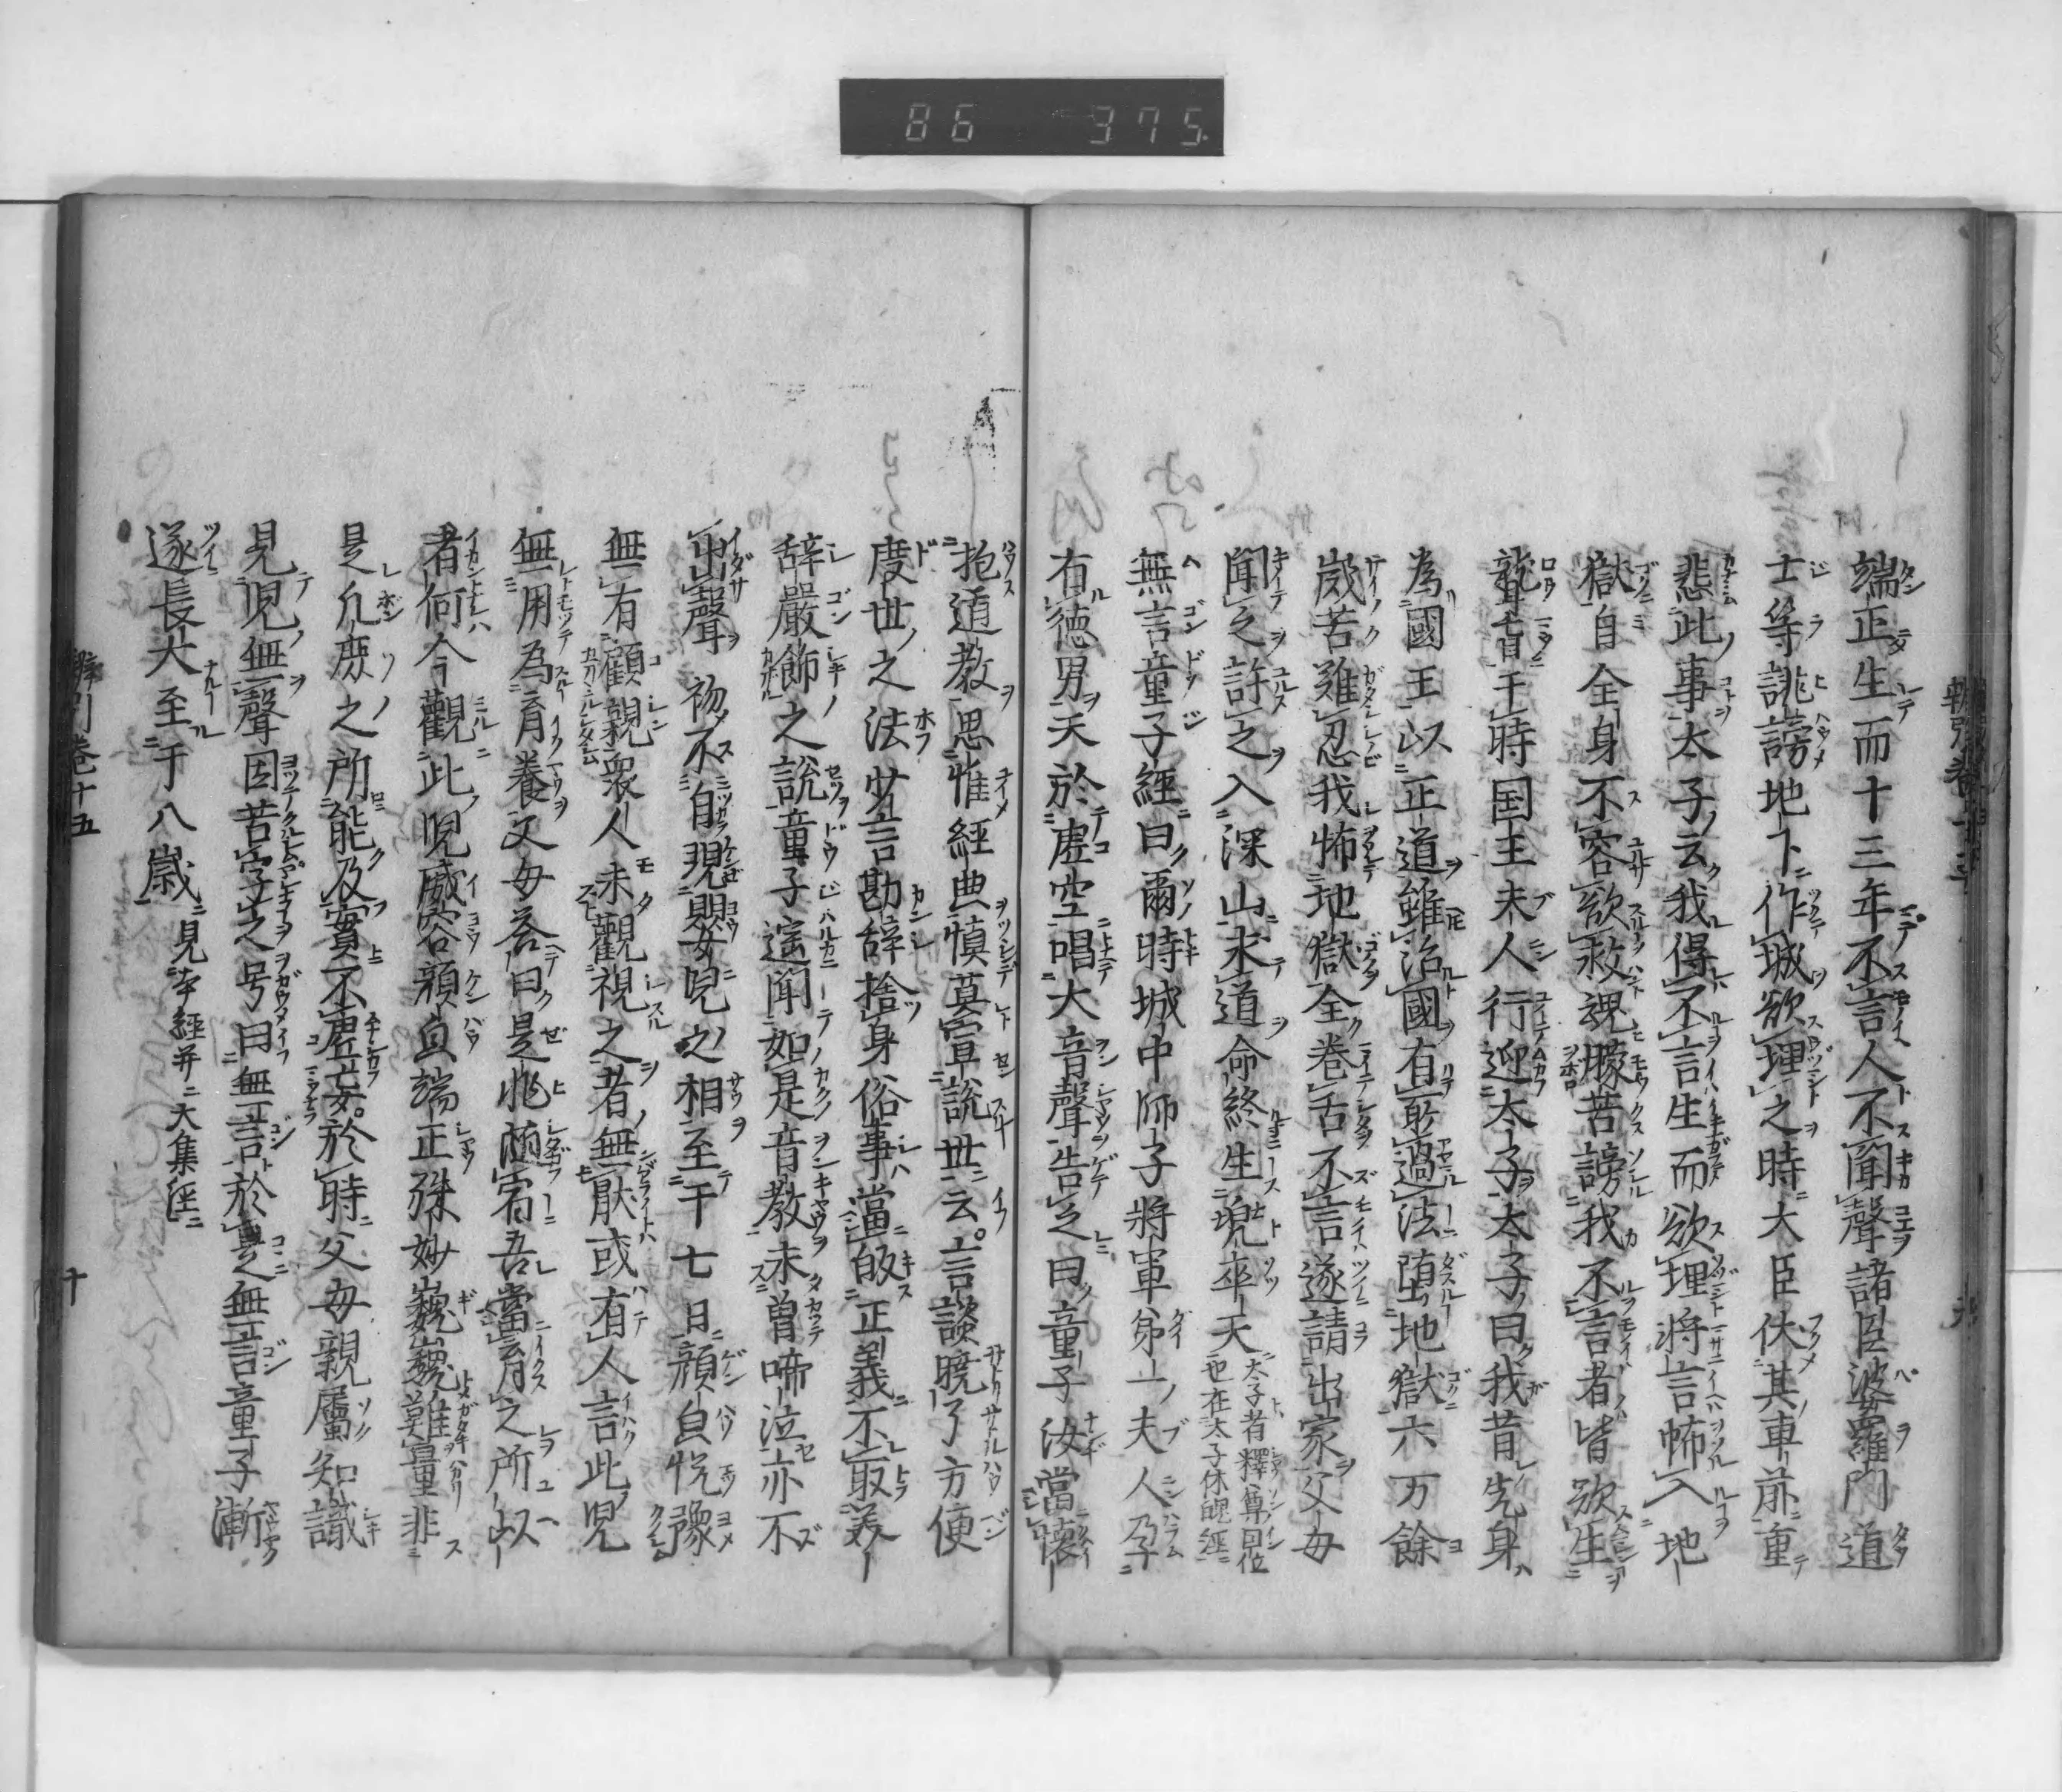 86 375
端正生而十三年不言人不聞聲諸臣婆羅門道
士等誹謗地下作城欲埋之時大臣伏其車前重
悲此事太子云我得不言生而欲埋將言怖入地
獄自全身不容欲救魂朦苦謗我不言者皆欲生
聾盲于時国王夫人行迎太子太子曰我昔先身
為國王以正道雖治國有臤過法堕地獄六万餘
歳苦難忍我怖地獄全巻舌不言遂請出家父母
聞之許之入深山求道命終生兜率天太子者釋尊因位
也在太子休魄經
無言童子經曰爾時城中師子將軍弟ー夫人孕子
有徳男天於虚空唱大音聲告之曰童子汝當懐
抱道教思惟經典慎莫宣說世云言談曉了方便
度世之法甞言勘辞捨身俗事當皈正義不取美
辞嚴餝之說童子遥聞如是音教未曽啼泣亦不
出聲初不自現嬰児之相至于七日顔皃恱豫
無有顧親衆人未觀視之者無猒或有人言此児
無用為育養父母答曰是非随宿吾當育之所以
者何今觀此児威容顔皃端正殊妙巍巍難量非
是凢庶之所能及實不虚妄於時父母親屬知識
見児無聲因苦字之号曰無言於是無言童子漸
遂長大至于八歳見本經并大集經
辨引巻十五
十